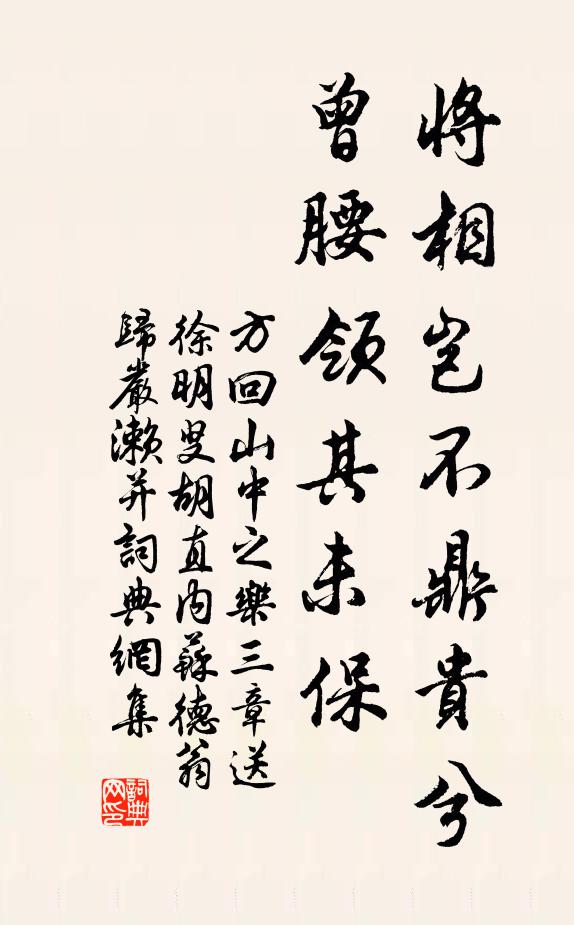 將相豈不鼎貴兮
曾腰領其未保
方回山中之樂三章送
徐明叟胡直内蘇德翁
歸嚴瀨并詞典網集
詞典網印